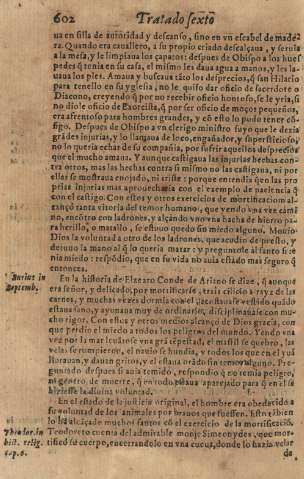 602 Tratado sexto
ua en silla de autoridad y descanso, sino en vn escabel de made-
ra. Quando era cauallero, a su proprio criado descalçaua, y seruia
a la mesa, y le limpiaua los çapatos: despues de Obispo a los hues
pedes q̃ tenia en su casa, el mismo les daua agua a manos, y les la-
uaua los pies. Amaua y buscaua tãto los desprecios, q̃ san Hilario
para tenello en su yglesia, no le quiso dar oficio de sacerdote o
Diacono, creyendo q̃ por no recebir oficio honroso, se le yria, si
no dio le oficio de Exorcista, q̃ por ser oficio de moços pequeños,
era afrentoso para hombres grandes, y cõ esto lo pudo tener cõ-
sigo. Despues de Obispo a vn clerigo ministro suyo que le dezia
grãdes injurias, y lo llamaua de loco, engañador, y supersticioso,
no lo queria echar de su compañia, por sufrir aquellos desprecios
que el mucho amaua. Y aunque castigaua las injurias hechas con-
tra otros, mas las hechas contra si mismo no las castigaua, ni por
ellas se mostraua enojado, ni triste: porque entendia que las pro
prias injurias mas aprouechauan con el exemplo de paciencia q̃
con el castigo. Con estos y otros exercicios de mortificacion al-
canço tanta vitoria del temor humano, que yendo vna vez cami
no, encõtro con ladrones, y alçando vno vna hacha de hierro pa-
ra herillo, o matallo, se estuuo quedo sin miedo alguno. Mouio
Dios la voluntad a otro de los ladrones, que acudio de presto, y
detuuo la mano al q̃ lo queria matar: y preguntole al santo si te-
nia miedo: respõdio, que en su vida no auia estado mas seguro q̃
entonces.
Surius in En la historia de Elzearo Conde de Arizno se dize, q̃ aunque
Septemb. era señor, y delicado, por mortificarse, traia cilicio a rayz de las
carnes, y muchas vezes dormia con el que estaua vestido quãdo
estaua sano, y ayunaua muy de ordinario, disciplinauase con mu-
cho rigor. Con estos y otros medios alcanço de Dios gracia, con
que perdio el miedo a todos los peligros del mundo. Yendo vna
vez por la mar leuãtose vna grã tẽpestad, el mastil se quebro, las
velas se rompieron, el nauio se hundia, y todos los que en el yuã
llorauan, y dauan gritos, y el estaua orãdo sin temor alguno. Pre-
guntado despues si auia temido, respondio q̃ no temia peligro,
ni genero de muerte, q̃ en todo estaua aparejado para q̃ en el se
hiziesse la diuina voluntad.
En el estado de la justicia original, el hombre era obedecido a
su voluntad de los animales por brauos que fuessen. Esto tãbien
lo hã alcançado muchos santos cõ el exercicio de la mortificaciõ.
Theodor. in Teodoreto cuenta del admirable monje Simeonydes, que mor-
hist. relig. tificò su cuerpo, encerrandolo en vna cueua, donde lo hazia velar
cap. 6. da